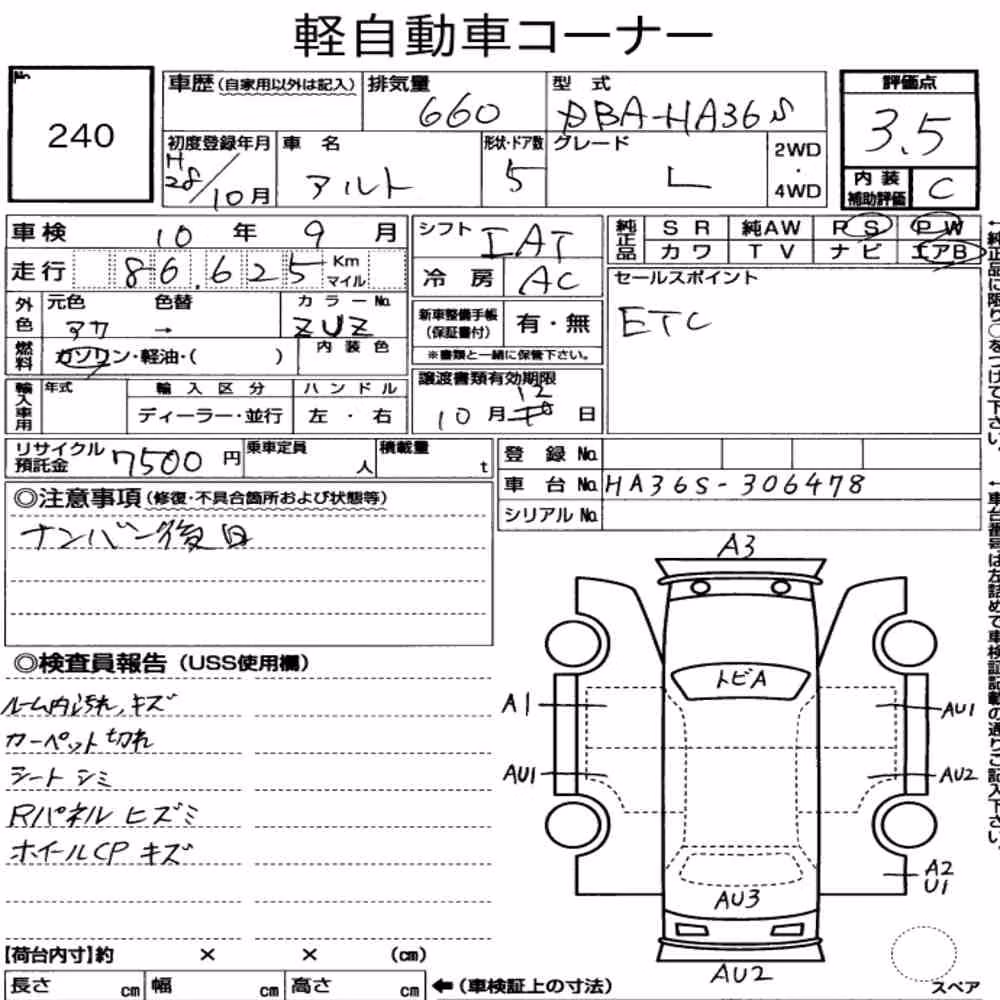 軽自動車コーナー
No.
240
車歴(自家用以外は記入) 排気量 660 型式 DBA-HA36S 評価点 3.5
初度登録年月 H28/10月 車名 アルト 形状・ドア数 5 グレード L 2WD・4WD 内装補助評価 C
車検 10年 9月 シフト IAT 純正品 SR 純AW PS PW
カワ TV ナビ エアB
走行 86.625 Km マイル 冷房 AC セールスポイント
ETC
外色 元色 アカ 色替 → カラーNo. ZUZ 新車整備手帳(保証書付) 有・無
※書類と一緒に保管下さい。
燃料 ガソリン・軽油・( ) 内装色
輸入車用 年式 輸入区分 ハンドル
ディーラー・並行 左・右
譲渡書類有効期限
10月 12 日
リサイクル預託金 7500円 乗車定員 人 積載量 t
登録No.
車台No. HA36S-306478
シリアルNo.
←純正品に限り○をつけて下さい。
←車台番号は左詰めで車検証記載の通りご記入下さい。
◎注意事項(修復・不具合箇所および状態等)
ナンバー後日
◎検査員報告(USS使用欄)
ルーム内汚れ,キズ
カーペット切れ
シート シミ
Rパネル ヒズミ
ホイールCP キズ
A3
トビA
A1
AU1
AU1
AU2
A2
U1
AU3
AU2
【荷台内寸】約 × × (cm)
長さ cm 幅 cm 高さ cm ←(車検証上の寸法)
スペア